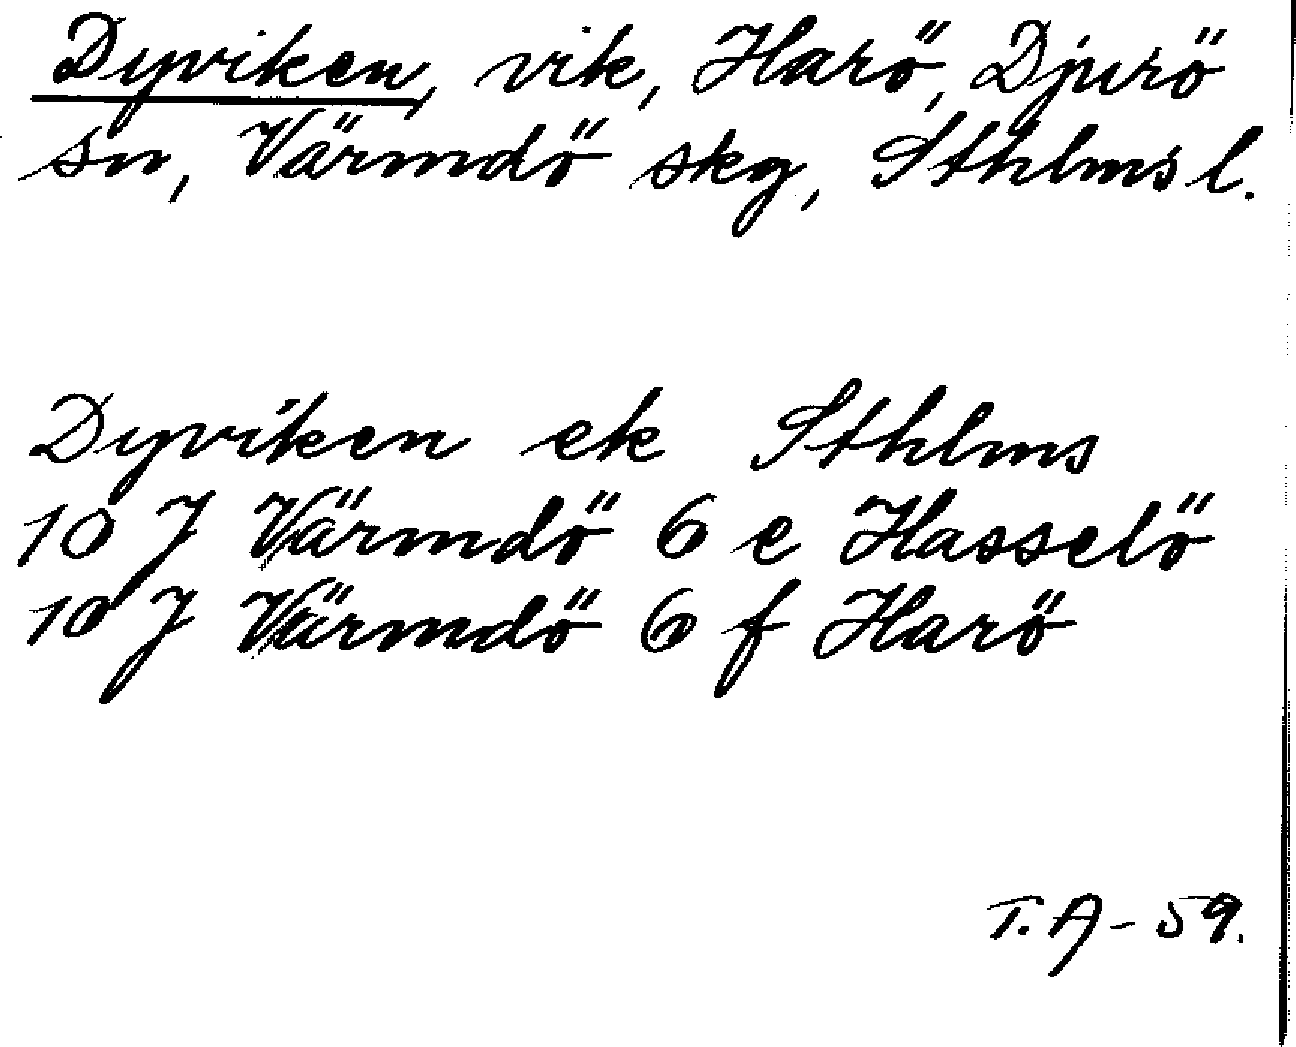 Dyviken, vik, Harö, Djurö
sn, Värmdö skg, Sthlms l.
Dyviken ek Sthlms
10 J Värmdö 6 e Hasselö
10 J Värmdö 6 f Harö
T. A - 59.